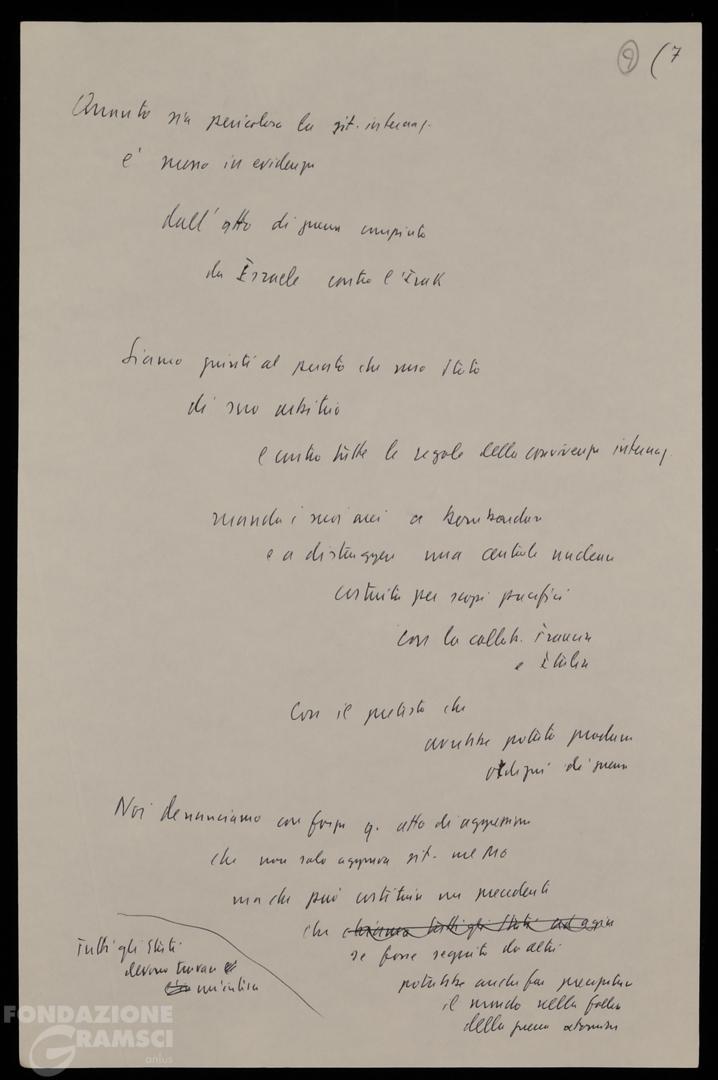 9 (7
Quanto sia pericolosa la sit. internaz.
è messo in evidenza
dall'atto di guerra compiuto
da Israele contro l'Irak
Siamo giunti al punto che uno Stato
di suo arbitrio
e contro tutte le regole della convivenza internaz.
manda i suoi aerei a bombardare
e a distruggere una centrale nucleare
costruita per scopi pacifici
con la collab. Francia
e Italia
Con il pretesto che
avrebbe potuto produrre
ordigni di guerra
Noi denunciamo con forza q. atto di aggressione
che non solo aggrava sit. nel MO
ma che può costituire un precedente
che tutti gli Stati ad agire
se fosse seguito da altri
potrebbe anche far precipitare
il mondo nella follia
della guerra atomica
Tutti gli Stati
devono trovare
un'intesa
FONDAZIONE
GRAMSCI
onlus